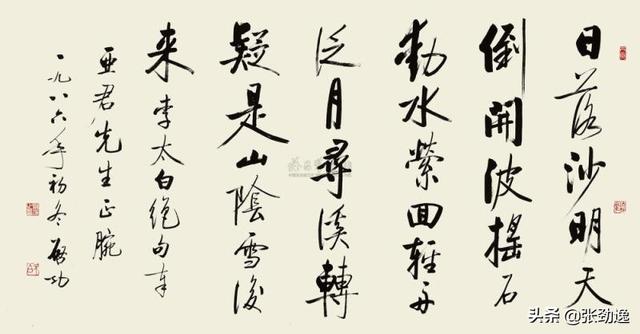 日落沙明天
倒開波搖石
動水縈回輕舟
泛月尋溪轉
疑是山陰雪後
来李太白絕句奉
亞君先生正腕
一九八六年初冬啟功
头条 @张劲逸